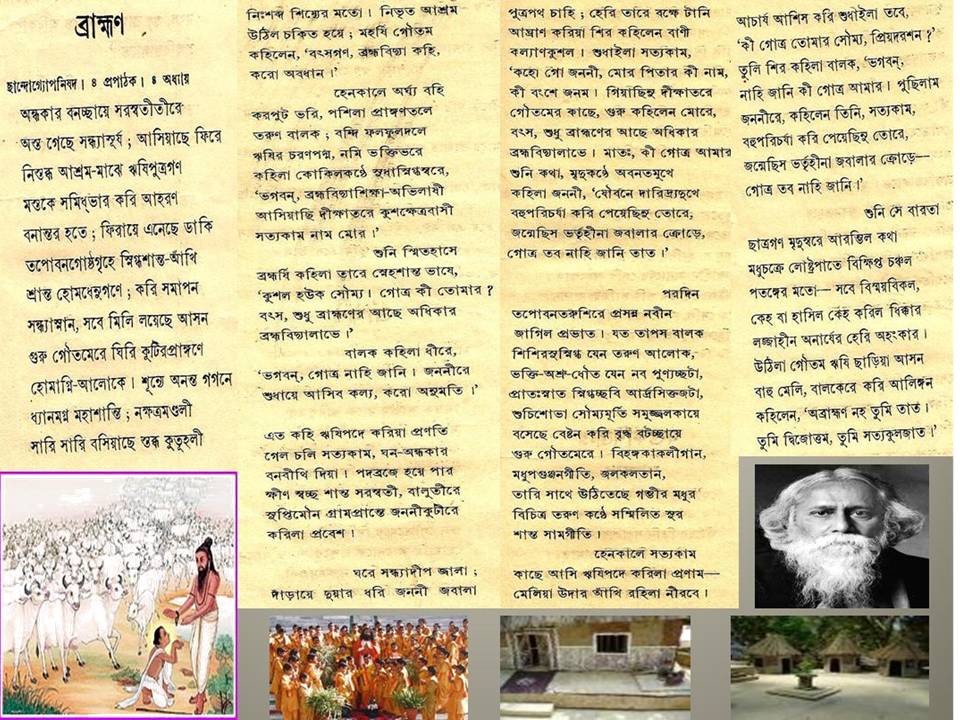 ব্রাহ্মণ
ছান্দোগ্যোপনিষদ্‌। ৪ প্রপাঠক। ৪ অধ্যায়
অন্ধকার বনচ্ছায়ে সরস্বতীতীরে
অস্ত গেছে সন্ধ্যাসূর্য ; আসিয়াছে ফিরে
নিস্তব্ধ আশ্রম-মাঝে ঋষিপুত্রগণ
মস্তকে সমিধ্‌ভার করি আহরণ
বনান্তর হতে ; ফিরায়ে এনেছে ডাকি
তপোবনগোষ্ঠগৃহে স্নিগ্ধশান্ত-আঁখি
শ্রান্ত হোমধেনুগণে ; করি সমাপন
সন্ধ্যাস্নান, সবে মিলি লয়েছে আসন
গুরু গৌতমেরে ঘিরি কুটিরপ্রাঙ্গণে
হোমাগ্নি-আলোকে। শূন্যে অনন্ত গগনে
ধ্যানমগ্ন মহাশান্তি ; নক্ষত্রমণ্ডলী
সারি সারি বসিয়াছে স্তব্ধ কুতূহলী
নিঃশব্দ শিষ্যের মতো। নিভৃত আশ্রম
উঠিল চকিত হয়ে ; মহর্ষি গৌতম
কহিলেন, ‘বৎসগণ, ব্রহ্মবিদ্যা কহি,
করো অবধান।’
হেনকালে অর্ঘ্য বহি
করপুট ভরি, পশিলা প্রাঙ্গণতলে
তরুণ বালক ; বন্দি ফলফুলদলে
ঋষির চরণপদ্ম, নমি ভক্তিভরে
কহিলা কোকিলকণ্ঠে সুধাস্নিগ্ধস্বরে,
‘ভগবন্‌, ব্রহ্মবিদ্যাশিক্ষা-অভিলাষী
আসিয়াছি দীক্ষাতরে কুশক্ষেত্রবাসী
সত্যকাম নাম মোর।’
শুনি স্মিতহাসে
ব্রহ্মর্ষি কহিলা তারে স্নেহশান্ত ভাষে,
‘কুশল হউক সৌম্য। গোত্র কী তোমার ?
বৎস, শুধু ব্রাহ্মণের আছে অধিকার
ব্রহ্মবিদ্যালাভে।’
বালক কহিলা ধীরে,
‘ভগবন্‌, গোত্র নাহি জানি। জননীরে
শুধায়ে আসিব কল্য, করো অনুমতি।’
এত কহি ঋষিপদে করিয়া প্রণতি
গেল চলি সত্যকাম, ঘন-অন্ধকার
বনবীথি দিয়া। পদব্রজে হয়ে পার
ক্ষীণ স্বচ্ছ শান্ত সরস্বতী, বালুতীরে
সুপ্তিমৌন গ্রামপ্রান্তে জননীকুটীরে
করিলা প্রবেশ।
ঘরে সন্ধ্যাদীপ জ্বালা ;
দাঁড়ায়ে দুয়ার ধরি জননী জবালা
পুত্রপথ চাহি ; হেরি তারে বক্ষে টানি
আঘ্রাণ করিয়া শির কহিলেন বাণী
কল্যাণকুশল। শুধাইলা সত্যকাম,
‘কহো গো জননী, মোর পিতার কী নাম,
কী বংশে জনম। গিয়াছিনু দীক্ষাতরে
গৌতমের কাছে, গুরু কহিলেন মোরে,
বৎস, শুধু ব্রাহ্মণের আছে অধিকার
ব্রহ্মবিদ্যালাভে। মাতঃ, কী গোত্র আমার
শুনি কথা, মৃদুকণ্ঠে অবনতমুখে
কহিলা জননী, ‘যৌবনে দারিদ্র্যদুখে
বহুপরিচর্যা করি পেয়েছিনু তোরে,
জন্মেছিস ভর্তৃহীনা জবালার ক্রোড়ে,
গোত্র তব নাহি জানি তাত।’
পরদিন
তপোবনতরুশিরে প্রসন্ন নবীন
জাগিল প্রভাত। যত তাপস বালক
শিশিরসুস্নিগ্ধ যেন তরুণ আলোক,
ভক্তি-অশ্রু-ধৌত যেন নব পুণ্যচ্ছটা,
প্রাতঃস্নাত স্নিগ্ধচ্ছবি আর্দ্রসিক্তজটা,
শুচিশোভা সৌম্যমূর্তি সমুজ্জ্বলকায়ে
বসেছে বেষ্টন করি বৃদ্ধ বটচ্ছায়ে
গুরু গৌতমেরে। বিহঙ্গকাকলীগান,
মধুপগুঞ্জনগীতি, জলকলতান,
তারি সাথে উঠিতেছে গম্ভীর মধুর
বিচিত্র তরুণ কণ্ঠে সম্মিলিত সুর
শান্ত সামগীতি।
হেনকালে সত্যকাম
কাছে আসি ঋষিপদে করিলা প্রণাম—
মেলিয়া উদার আঁখি রহিলা নীরবে।
আচার্য আশিস করি শুধাইলা তবে,
‘কী গোত্র তোমার সৌম্য, প্রিয়দরশন ?’
তুলি শির কহিলা বালক, ‘ভগবন্‌,
নাহি জানি কী গোত্র আমার। পুছিলাম
জননীরে, কহিলেন তিনি, সত্যকাম,
বহুপরিচর্যা করি পেয়েছিনু তোরে,
জন্মেছিস ভর্তৃহীনা জবালার ক্রোড়ে—
গোত্র তব নাহি জানি।’
শুনি সে বারতা
ছাত্রগণ মৃদুস্বরে আরম্ভিল কথা
মধুচক্রে লোষ্ট্রপাতে বিক্ষিপ্ত চঞ্চল
পতঙ্গের মতো— সবে বিস্ময়বিকল,
কেহ বা হাসিল কেহ করিল ধিক্কার
লজ্জাহীন অনার্যের হেরি অহংকার।
উঠিলা গৌতম ঋষি ছাড়িয়া আসন
বাহু মেলি, বালকেরে করি আলিঙ্গন
কহিলেন, ‘অব্রাহ্মণ নহ তুমি তাত।
তুমি দ্বিজোত্তম, তুমি সত্যকুলজাত।’